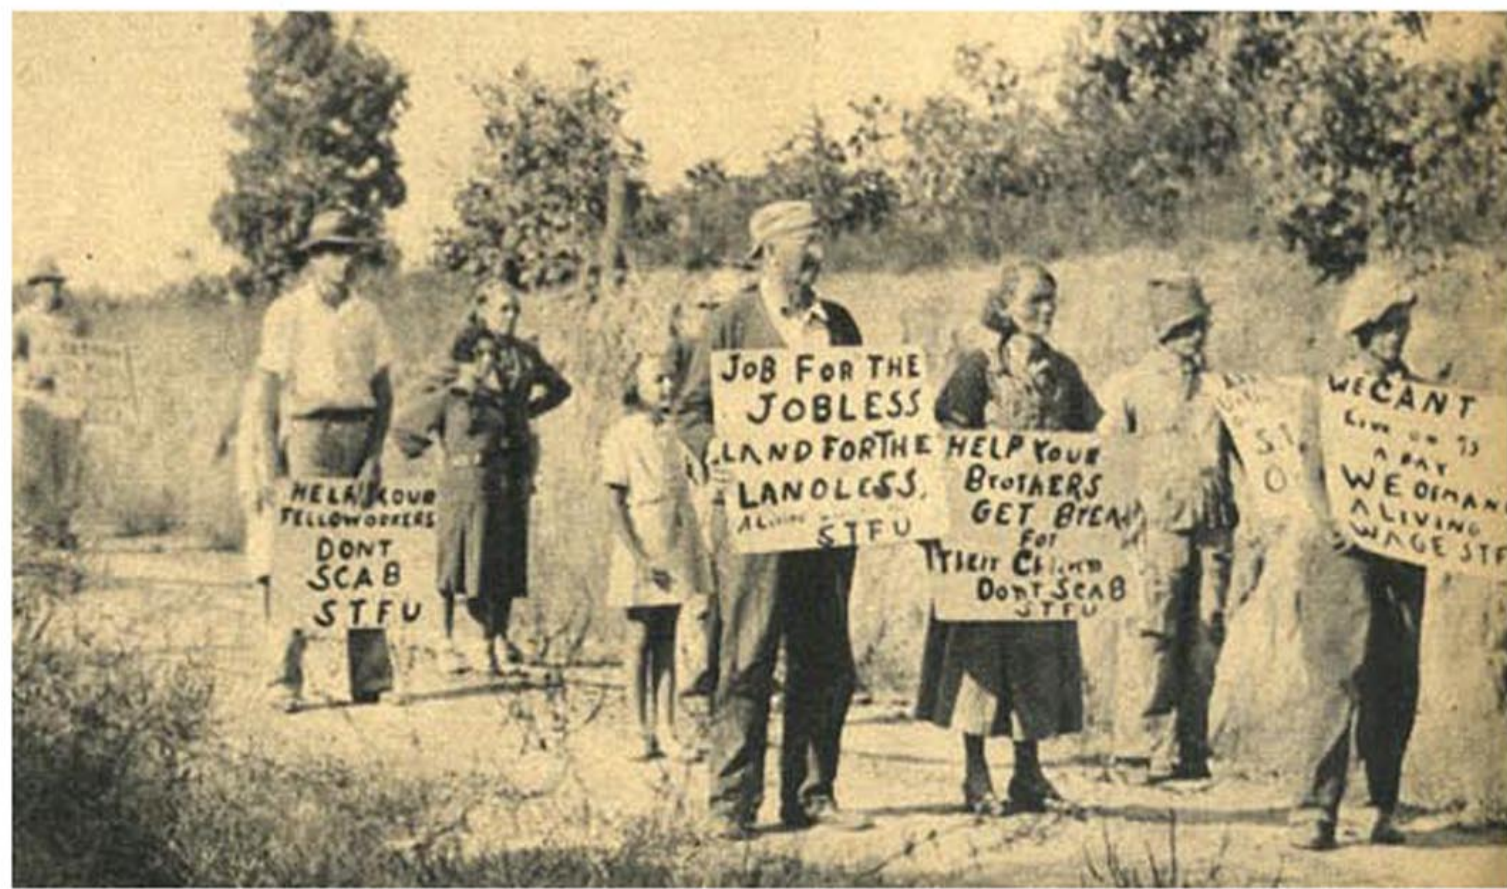 HELP YOUR
FELLOWORKERS
DONT
SCAB
STFU
JOB FOR THE
JOBLESS
LAND FOR THE
LANDLESS.
A LIVING
STFU
HELP YOUR
BROTHERS
GET BREA
FOR
THEIR
DONT SCAB
STFU
WE CANT
LIVE ON
A DAY
WE DEMAN
A LIVING
WAGE STF